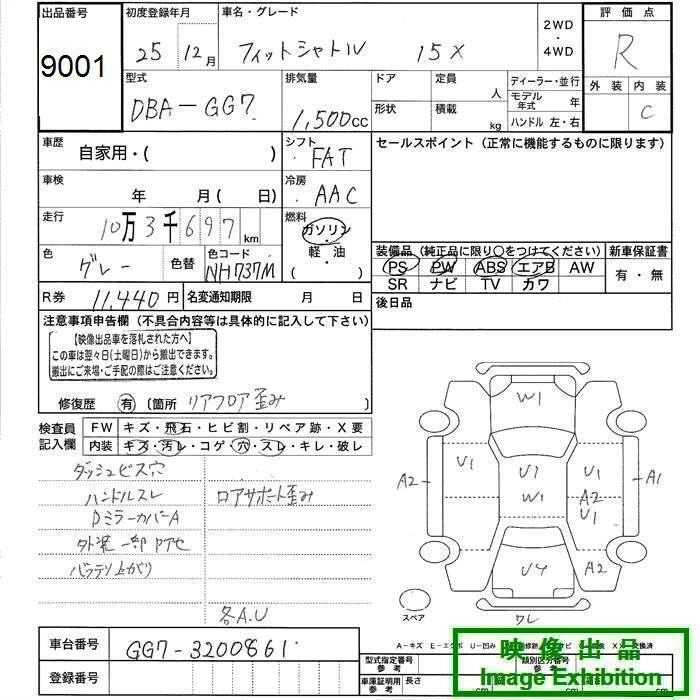 出品番号
9001
初度登録年月
25 12月
車名・グレード
フィットシャトル 15X
2WD
・
4WD
評価点
R
外装 内装
C
型式
DBA-GG7
排気量
1,500cc
ドア
形状
定員
人
積載
kg
ディーラー・並行
モデル年式 年
ハンドル 左・右
車歴
自家用・( )
シフト
FAT
車検
年 月( 日)
冷房
AAC
走行
10万3千697km
燃料
ガソリン
・
軽油
( )
色
グレー
色替
色コード
NH737M
R券
11,440円
名変通知期限 月 日
セールスポイント(正常に機能するものに限ります)
装備品(純正品に限り○をつけてください)
PS PW ABS エアB AW
SR ナビ TV カワ
新車保証書
有・無
後日品
注意事項申告欄(不具合内容等は具体的に記入して下さい)
【映像出品車を落札された方へ】
この車は翌々日(土曜日)から搬出できます。
搬出にご来場・ご手配の際はご注意ください。
修復歴 有 〔箇所 リアフロア歪み
検査員
記入欄
FW キズ・飛石・ヒビ割・リペア跡・X要
内装 キズ・汚レ・コゲ・穴・スレ・キレ・破レ
ダッシュビス穴
ハンドルスレ
DミラーカバーA
外装一部PTセ
バッテリ上がり
ロアサポート歪み
各A.U
W1
U1
U1
U1
A2
W1
A2
U1
A1
U4
A2
ワレ
スペア
A-キズ E-エクボ U-凹み
車台番号
GG7-3200861
登録番号
型式指定番号
参考
類別区分番号
参考
車庫証明用
参考
長さ
cm
cm
cm
映像出品
Image Exhibition